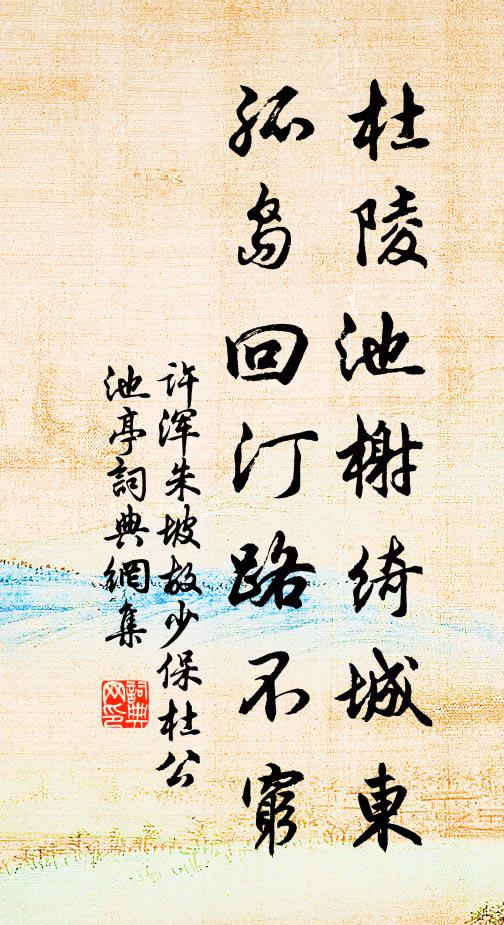 杜陵池榭綺城東
孤島回汀路不窮
许渾朱坡故少保杜公
池亭詞典網集
詞典
网印